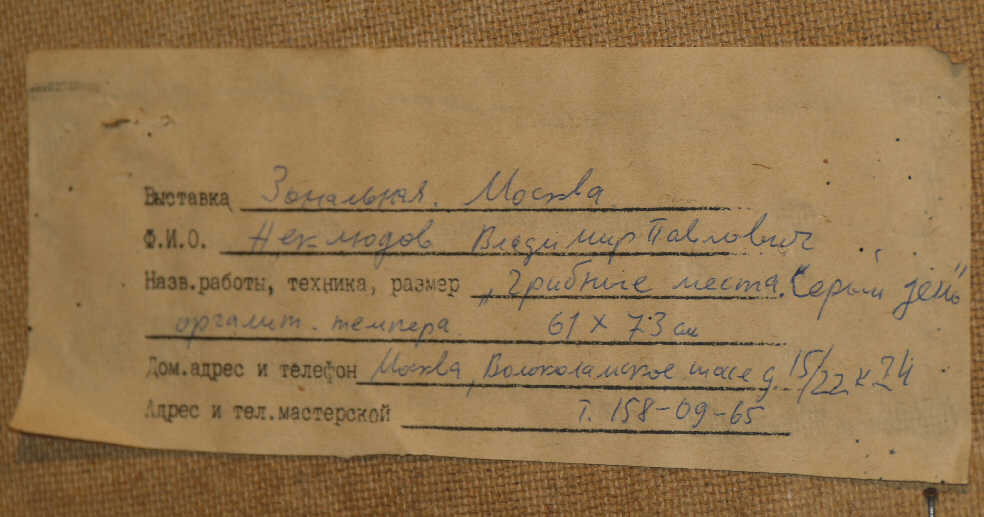 Выставка Зональная. Москва
Ф.И.О. Неклюдов Владимир Павлович
Назв.работы, техника, размер „Грибные места. Серый день"
оргалит. темпера 61 x 73 см
Дом.адрес и телефон Москва, Волоколамское шоссе д 15/22 к 24
Адрес и тел.мастерской т. 158-09-65